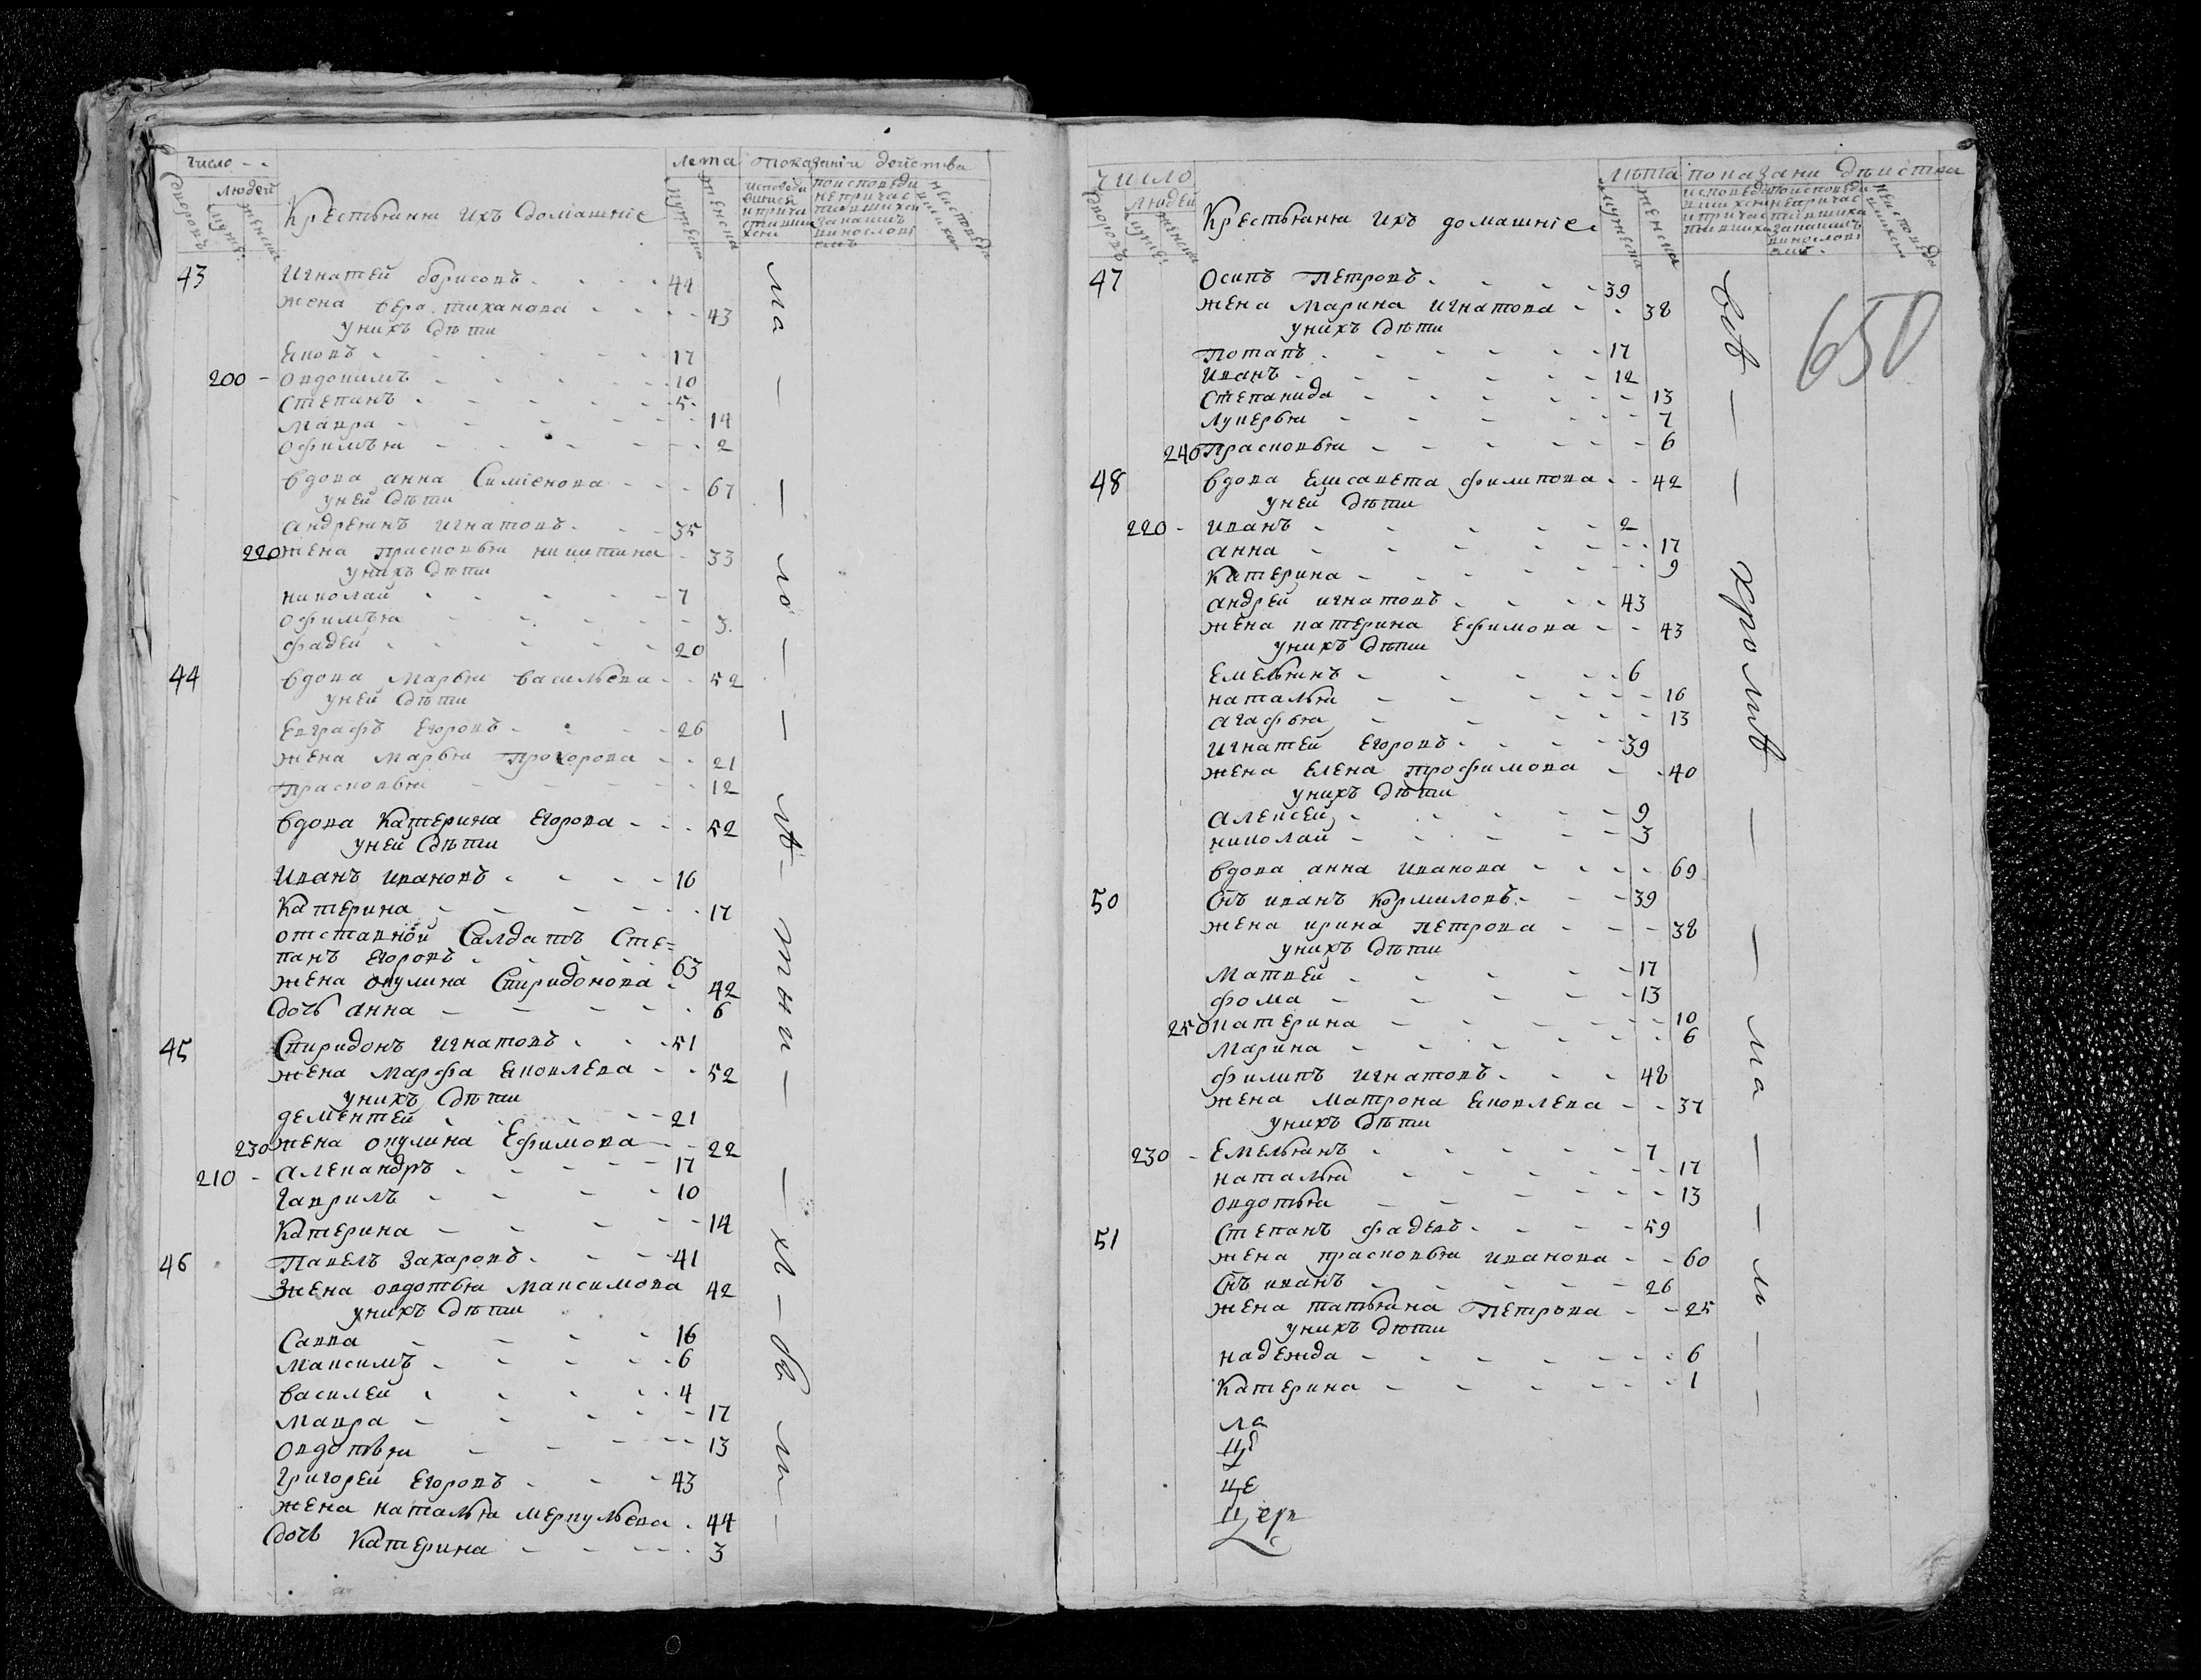 Число
людей
дворовъ
мужес.
женска
Крестьяня ихъ домашнiе
лета
мужеска
женска
показанiи действа
исповеда
вшися
и прича
стивши
хся
по исповеди
не причас
тившихся
за какимъ
винословi
емъ
не исповеда
вшихся
43 Игнатей борисовъ 44
жена вера тиханова 43
у нихъ дѣти
Яковъ 17
200 Овдокимъ 10
Степанъ 5
Мавра 14
Офимья 2
вдова анна Симiенова 67
у ней дѣти
андреянъ игнатовъ 35
220 жена прасковья никитина 33
у нихъ дѣти
николай 7
Офимья 3
фадей 20
44 вдова марья васильева 52
у ней дѣти
Евграфъ Егоровъ 26
жена марья Прохорова 21
Прасковья 12
вдова Катерина Егорова 52
у ней дѣти
Иванъ ивановъ 16
Катерина 17
отставной Салдатъ Сте=
панъ Егоровъ 63
жена окулина Спиридонова 42
дочь анна 6
45 Спиридонъ игнатовъ 51
жена марфа яковлева 52
у нихъ дѣти
дементей 21
230 жена окулина Ефимова 22
210 александръ 17
гаврилъ 10
Катерина 14
46 Павелъ захаровъ 41
жена овдотья максимова 42
у нихъ дѣти
Савва 16
максимъ 6
василей 4
мавра 17
овдотья 13
григорей Егоровъ 43
жена наталья меркульева 44
дочь Катерина 3
число
людей
дворовъ
мужес.
женска
Крестьяня ихъ домашнiе
лѣта
мужеска
женска
показани дѣиства
исповеда
вшихся
и причас
тившихся
по исповеди
не причас
тившихся
за какимъ
винословi
емъ
не исповеда
вшихся
650
47 Осипъ Петровъ 39
жена марина игнатова 38
у нихъ дѣти
Потапъ 17
Иванъ 12
Степанида 13
Лукерья 7
240 Прасковья 6
48 вдова Елисавета филипова 42
у ней дѣти
220 иванъ 2
анна 17
Катерина 9
андрей игнатовъ 43
жена катерина Ефимова 43
у нихъ дѣти
Емельянъ 6
наталья 16
агафья 13
игнатей Егоровъ 39
жена Елена трофимова 40
у нихъ дѣти
алексей 9
николай 3
вдова анна иванова 69
50 Снъ иванъ Кормиловъ 39
жена ирина петрова 38
у нихъ дѣти
матвей 17
фома 13
250 катерина 10
марина 6
филипъ игнатовъ 48
жена матрона яковлева 37
у нихъ дѣти
230 Емельянъ 7
наталья 17
овдотья 13
51 Степанъ фадевъ 59
жена прасковья иванова 60
Снъ иванъ 26
жена татьяна Петрова 25
у нихъ дѣти
надежда 6
Катерина 1
ла
це
це
Церк